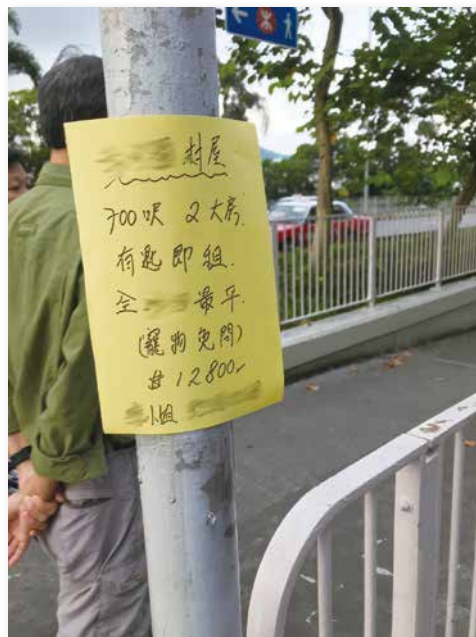 村屋
700呎 2大房.
有匙即組.
全 最平.
(寵物免問)
$12800-
小姐